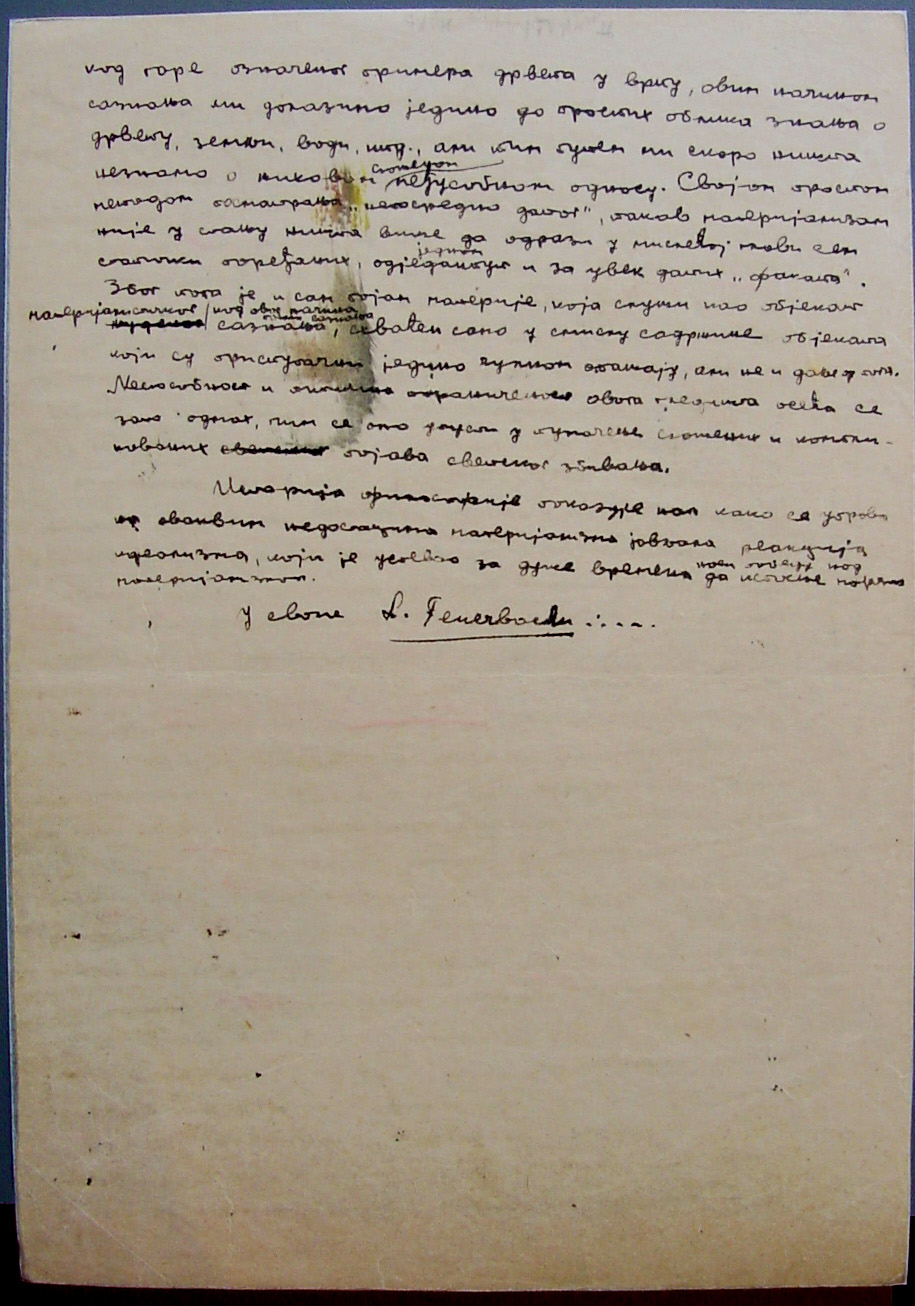 код горе означеног примера дрвета у врту, овим начином
сазнања ми долазимо једино до простих облика знања о
дрвету, земљи, води, итд., али тим путем ми скоро ништа
незнамо о њиховом сложеном међусобном односу. Својом простом
методом посматрања „непосредно датог“, такав материјализам
није у стању ништа више да одрази у мисленој глави сем
статички поређаних, једном одједанпут и за увек датих „факата“.
Због тога је и сам појам материје, која служи као објекат
материјалистичког код овог начина
сазнања, схваћен само у смислу садржине објеката
који су приступачни једино чулном опажају, али не и даље од тога.
Неспособност и ограниченост овога гледишта осећа се
зато одмах, чим се оно упусти у тумачење сложених и компли-
кованих појава свесног збивања.
Историја филозофије показује нам како се управо
оваквим недостацима материјализма јавила реакција
идеализма, који је успевао за дуже времена да истисне
материјализам.
У свопе L. Feuerbach .....